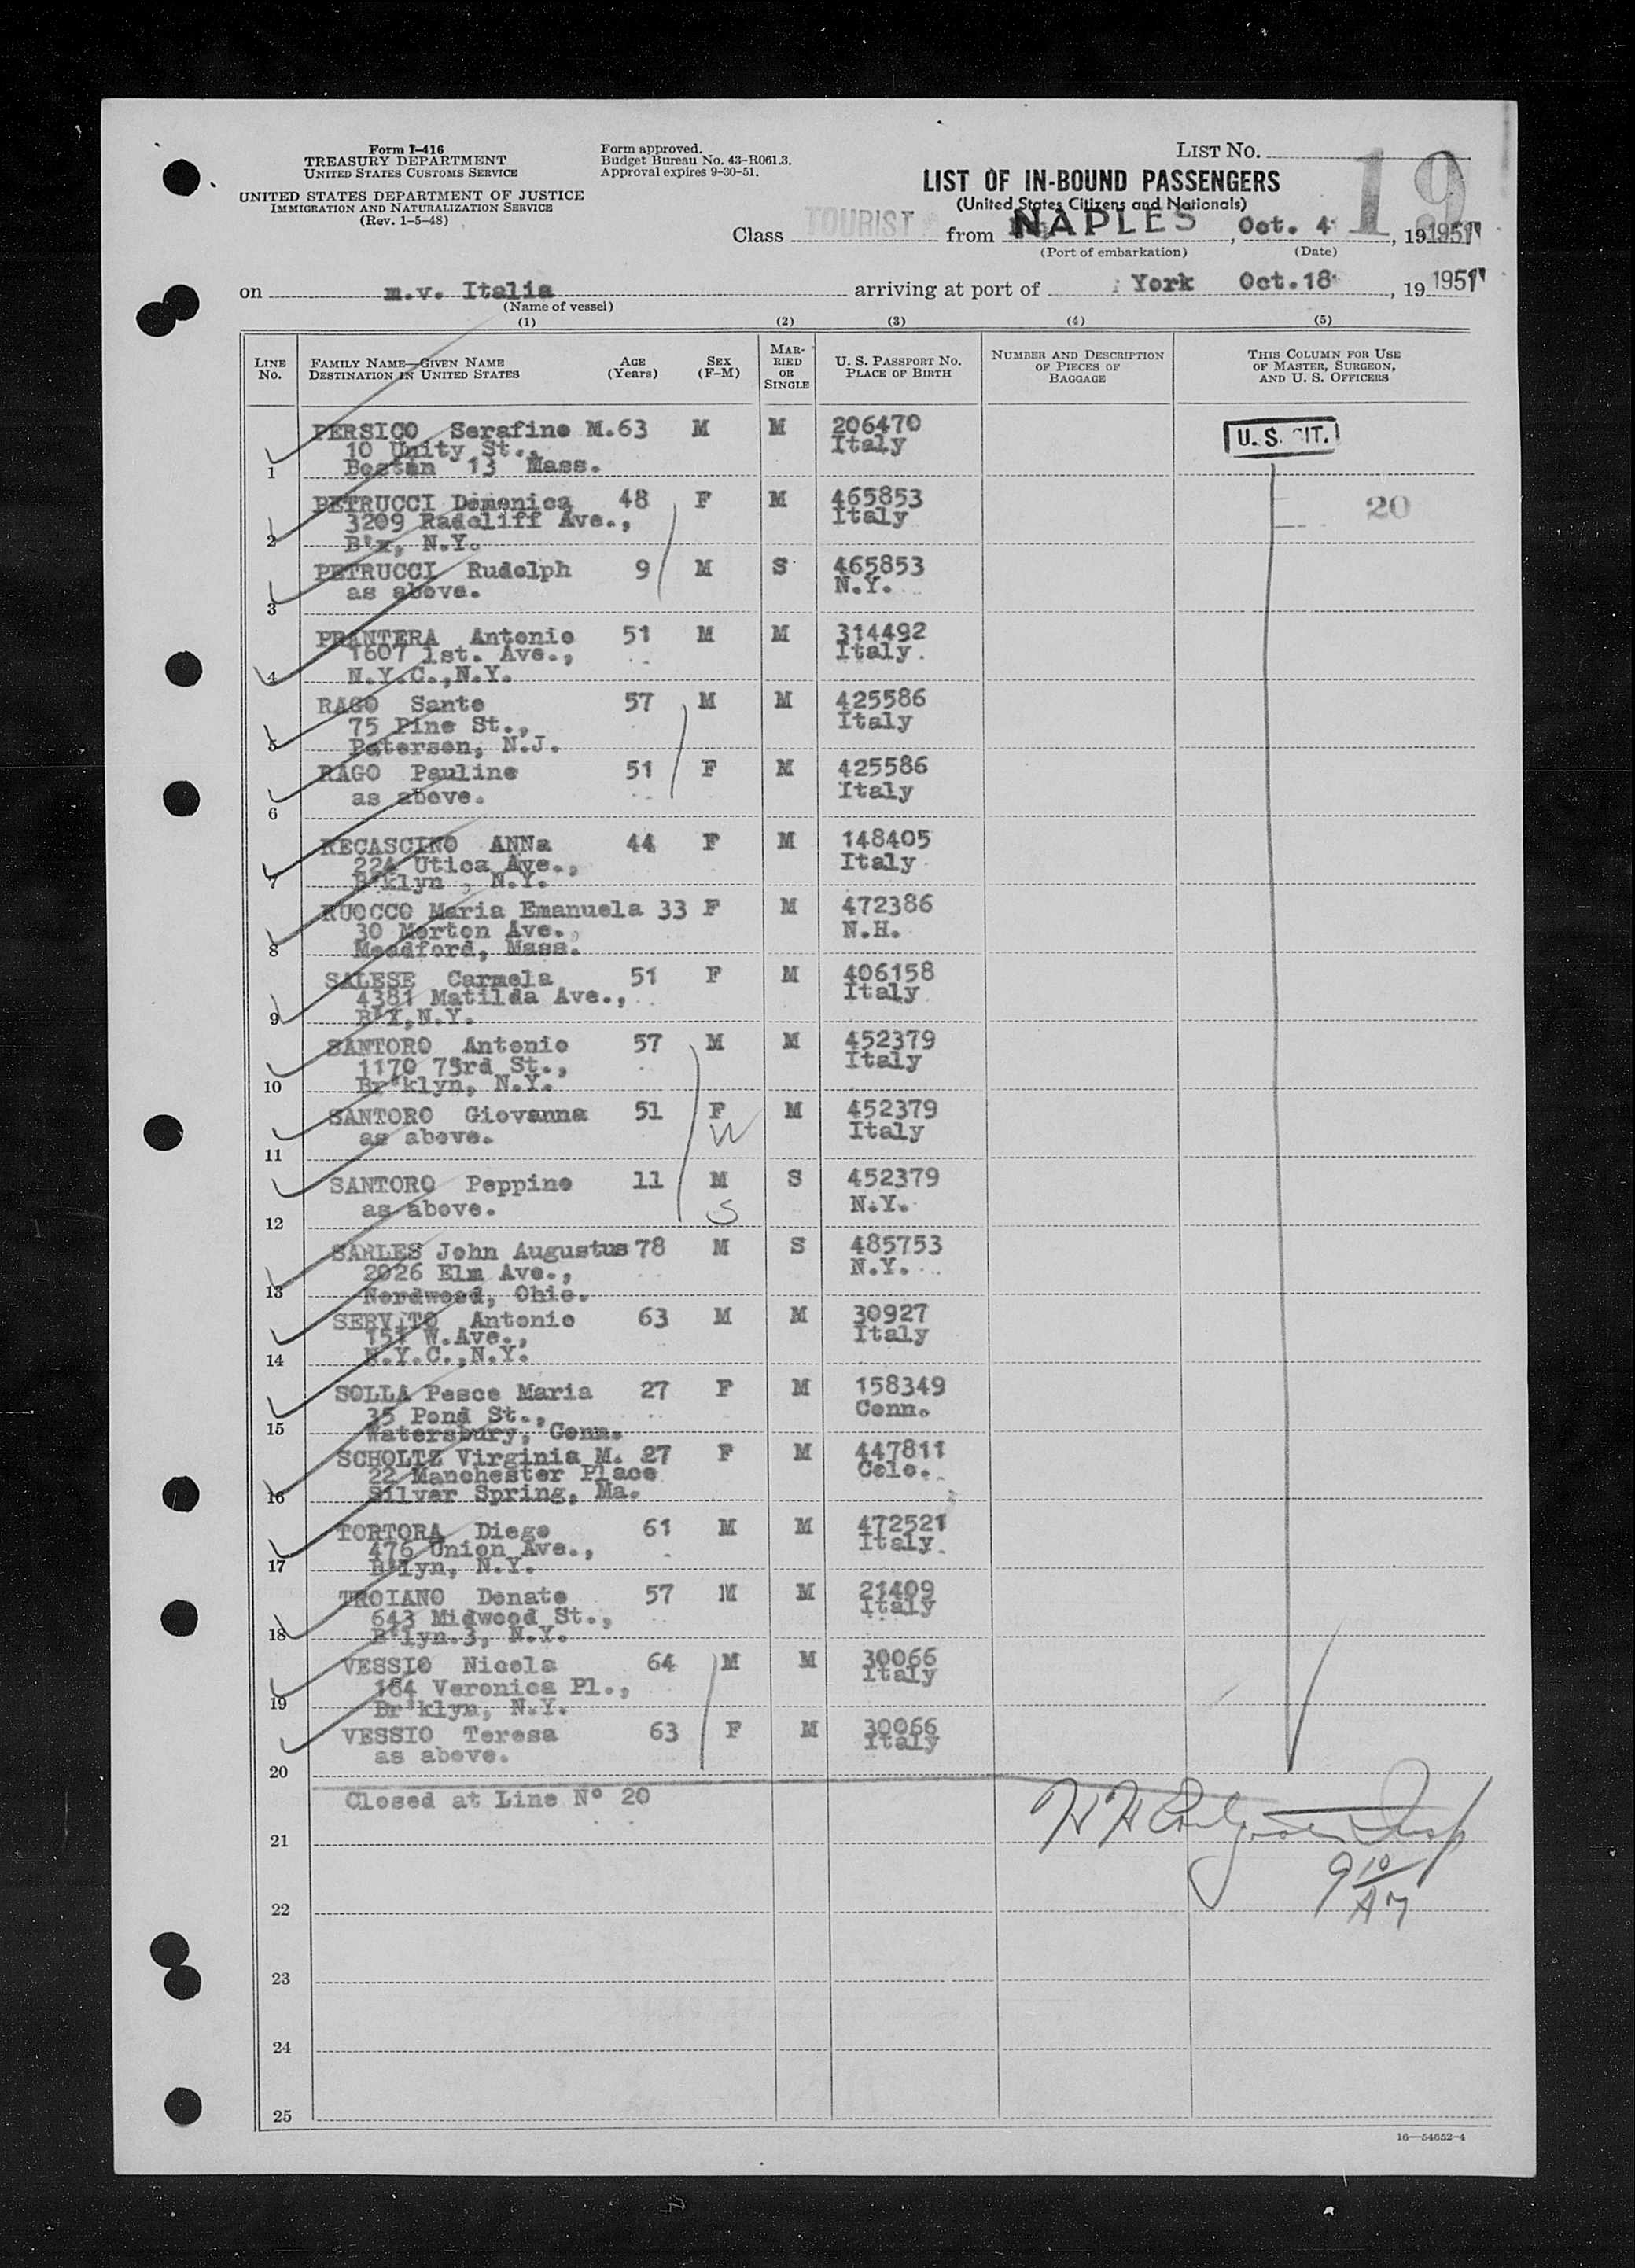 Form I-416
TREASURY DEPARTMENT
UNITED STATES CUSTOMS SERVICE
UNITED STATES DEPARTMENT OF JUSTICE
IMMIGRATION AND NATURALIZATION SERVICE
(Rev. 1-5-48)
Form approved.
Budget Bureau No. 43-R061.3.
Approval expires 9-30-51.
LIST NO.
19
LIST OF IN-BOUND PASSENGERS
(United States Citizens and Nationals)
Class TOURIST from NAPLES, Oct. 4, 19 1951
(Port of embarkation) (Date)
on m.v. Italia arriving at port of York Oct.18, 19 1951
(Name of vessel)
(1) (2) (3) (4) (5)
LINE No. FAMILY NAME—GIVEN NAME DESTINATION IN UNITED STATES AGE (Years) SEX (F-M) MARRIED OR SINGLE U. S. PASSPORT NO. PLACE OF BIRTH NUMBER AND DESCRIPTION OF PIECES OF BAGGAGE THIS COLUMN FOR USE OF MASTER, SURGEON, AND U. S. OFFICERS
PERSICO Serafino M. 63 M M 206470 U. S. CIT.
10 Unity St., Italy
1 Boston 13 Mass.
PETRUCCI Domenica 48 F M 465853 20
3209 Radcliff Ave., Italy
2 B'x, N.Y.
PETRUCCI Rudolph 9 M S 465853
as above. N.Y.
3
PRANTERA Antonio 51 M M 314492
1607 1st. Ave., Italy
4 N.Y.C.,N.Y.
RAGO Sante 57 M M 425586
75 Pine St., Italy
5 Paterson, N.J.
RAGO Pauline 51 F M 425586
as above. Italy
6
RECASCINO ANNa 44 F M 148405
224 Utica Ave., Italy
7 B'klyn , N.Y.
RUOCCO Maria Emanuela 33 F M 472386
30 Morton Ave., N.H.
8 Meadford, Mass.
SALESE Carmela 51 F M 406158
4381 Matilda Ave., Italy
9 B'X,N.Y.
SANTORO Antonio 57 M M 452379
1170 75rd St., Italy
10 Br'klyn, N.Y.
SANTORO Giovanna 51 F M 452379
as above. W Italy
11
SANTORO Peppino 11 M S 452379
as above. S N.Y.
12
SARLES John Augustus 78 M S 485753
2026 Elm Ave., N.Y.
13 Nordwood, Ohio.
SERVITO Antonio 63 M M 30927
151 W.Ave., Italy
14 N.Y.C.,N.Y.
SOLLA Pesce Maria 27 F M 158349
35 Pond St., Conn.
15 Watersbury, Conn.
SCHOLTZ Virginia M. 27 F M 447811
22 Manchester Place Colo.
16 Silver Spring, Ma.
TORTORA Diego 61 M M 472521
476 Union Ave., Italy
17 B'lyn, N.Y.
TROIANO Donato 57 M M 21409
643 Midwood St., Italy
18 B'lyn.3, N.Y.
VESSIO Nicola 64 M M 30066
164 Veronica Pl., Italy
19 Br'klyn, N.Y.
VESSIO Teresa 63 F M 30066
as above. Italy
20
Closed at Line Nº 20
21
9 10
AM
22
23
24
25
16—54652-4